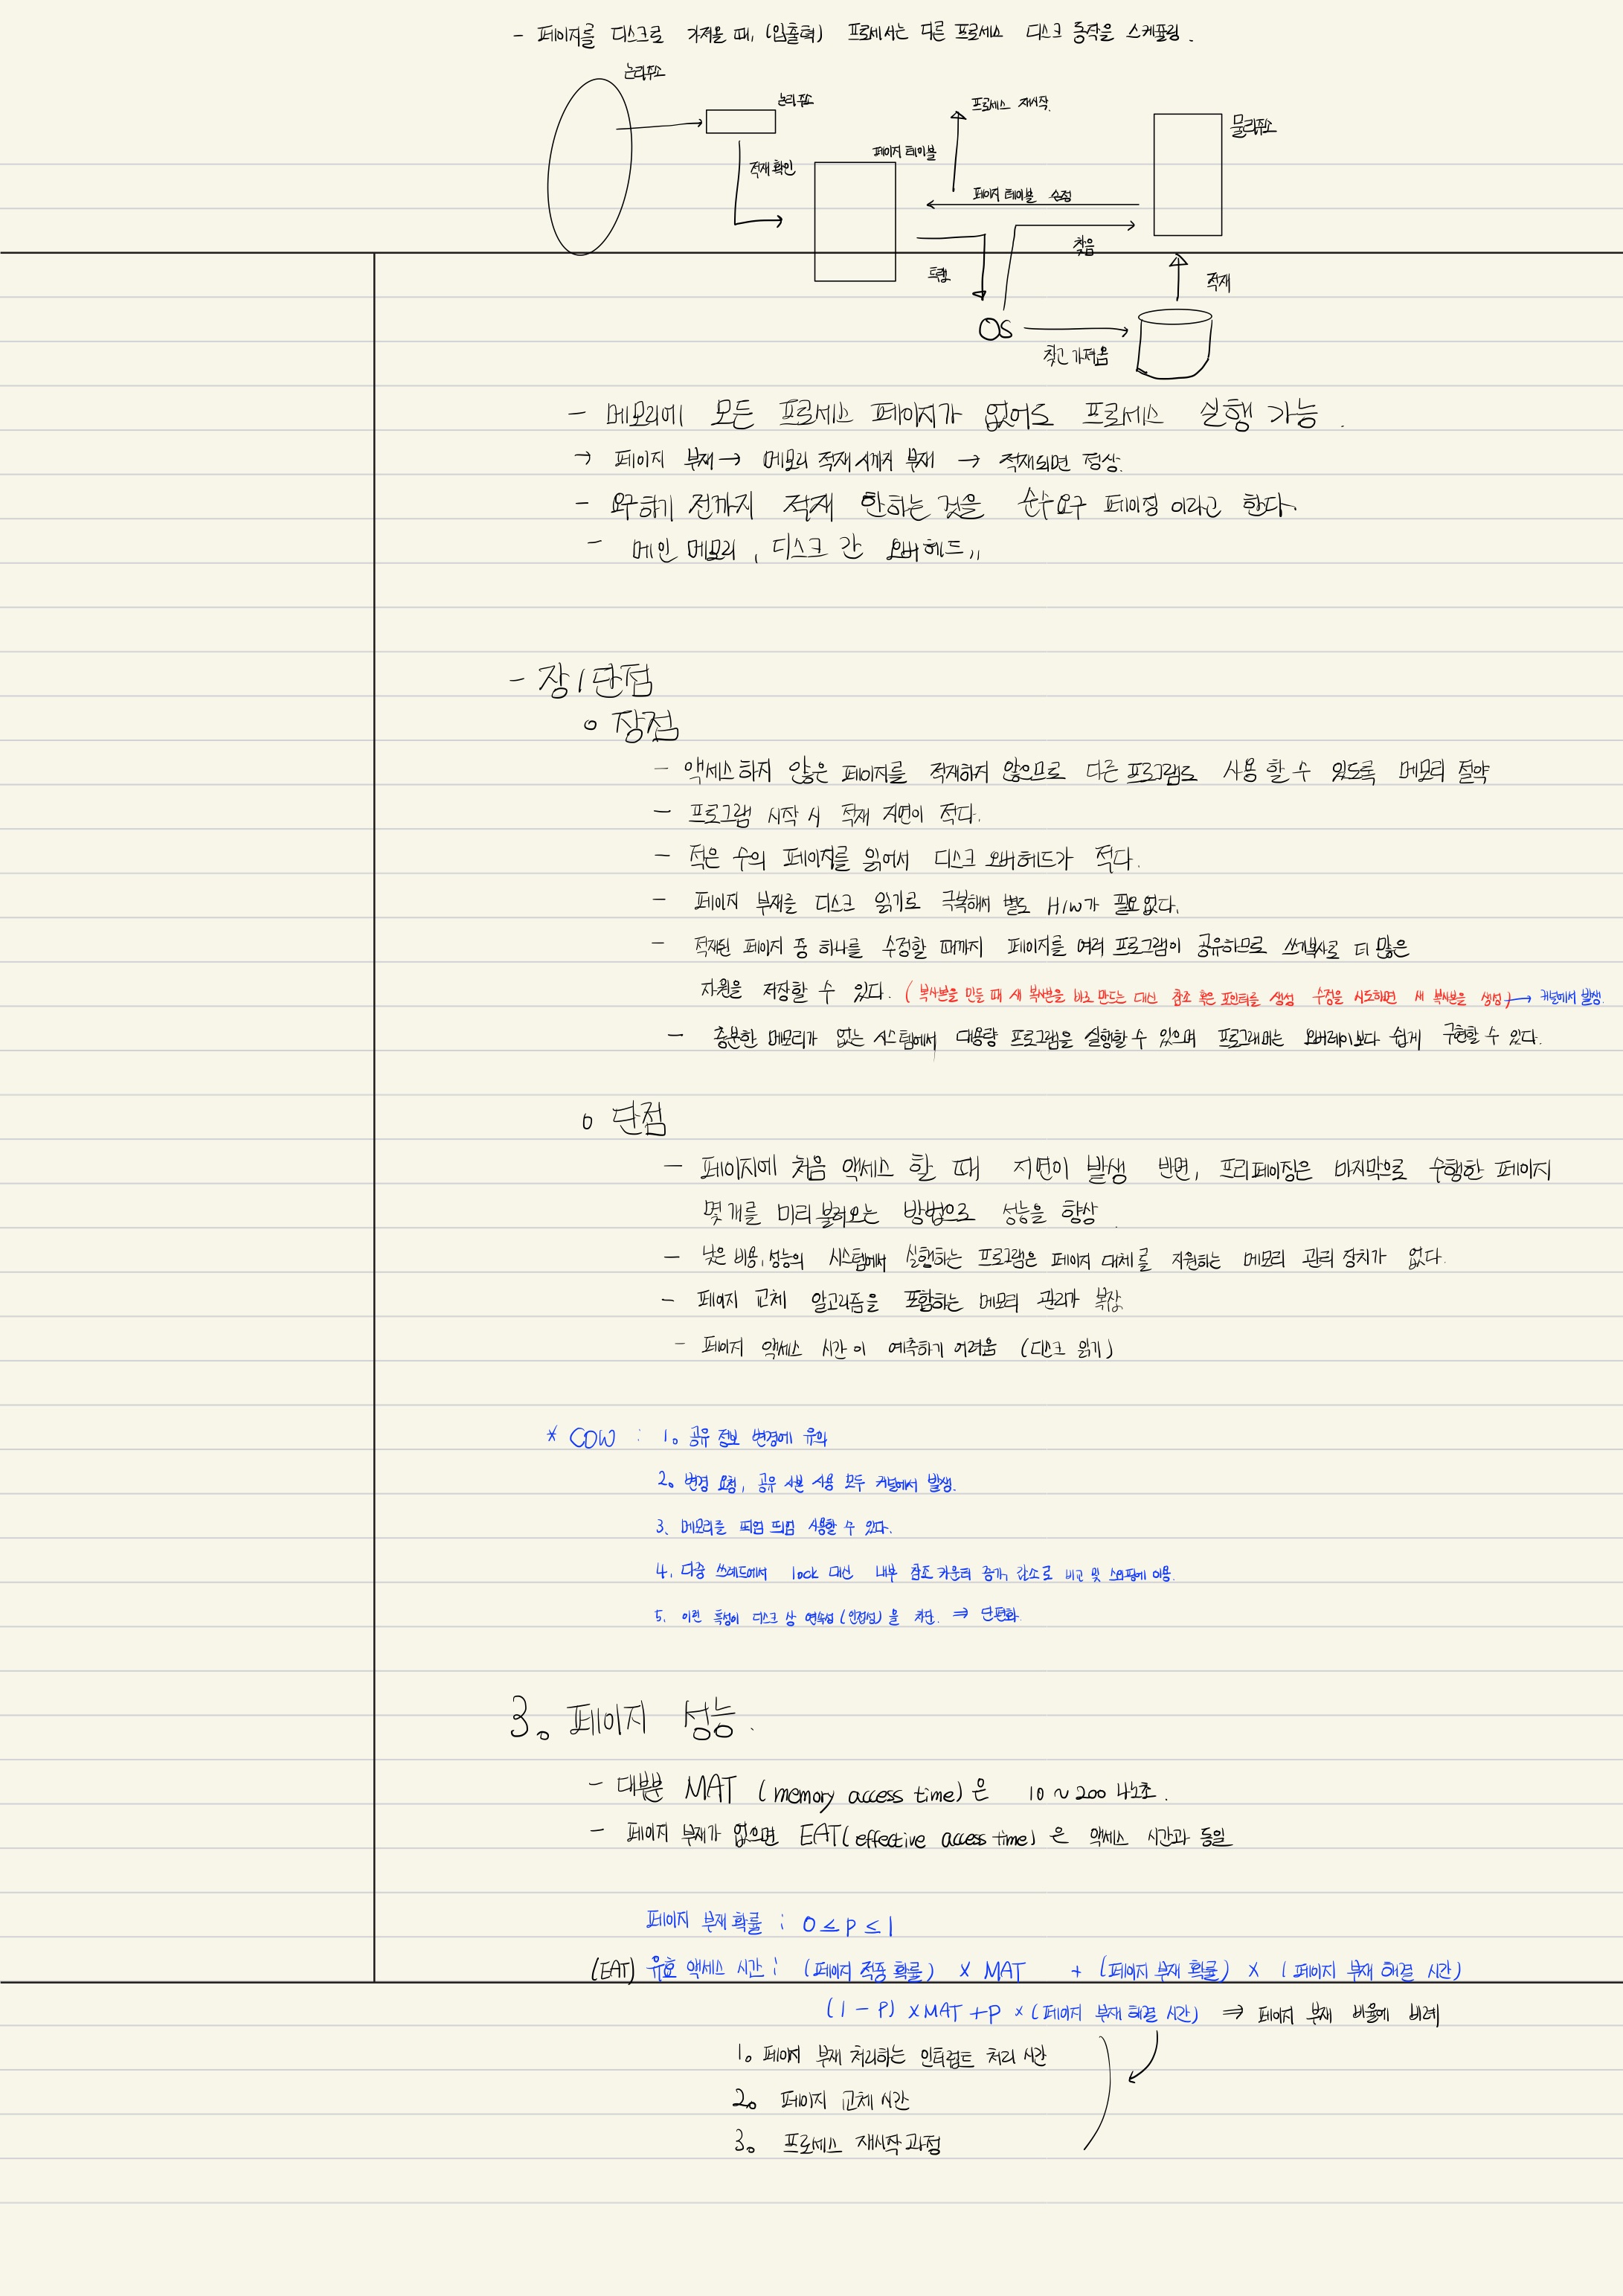 - 페이지를 디스크로 가져올 때, (입출력) 프로세서는 다른 프로세스 디스크 동작을 스케쥴링.
논리주소
논리주소
프로세스 재시작.
물리주소
페이지 테이블
적재 확인
페이지 테이블 수정
찾음
트랩
적재
OS
찾고 가져옴
- 메모리에 모든 프로세스 페이지가 없어도 프로세스 실행 가능.
→ 페이지 부재 → 메모리 적재 시까지 부재 → 적재되면 정상.
- 요구하기 전까지 적재 안하는 것을 순수요구 페이징 이라고 한다.
- 메인 메모리, 디스크 간 오버헤드,,
- 장/단점
o 장점
- 액세스하지 않은 페이지를 적재하지 않으므로 다른 프로그램도 사용 할 수 있도록 메모리 절약
- 프로그램 시작 시 적재 지연이 적다.
- 적은 수의 페이지를 읽어서 디스크 오버헤드가 적다.
- 페이지 부재를 디스크 읽기로 극복해서 별도 H/W가 필요 없다.
- 적재된 페이지 중 하나를 수정할 때까지 페이지를 여러 프로그램이 공유하므로 쓰기복사로 더 많은
자원을 저장할 수 있다. (복사본을 만들 때 새 복사본을 바로 만드는 대신 참조 혹은 포인터를 생성 수정을 시도하면 새 복사본을 생성) → 커널에서 발생.
- 충분한 메모리가 없는 시스템에서 대용량 프로그램을 실행할 수 있으며 프로그래머는 오버레이보다 쉽게 구현할 수 있다.
o 단점
- 페이지에 처음 액세스 할 때 지연이 발생 반면, 프리페이징은 마지막으로 수행한 페이지
몇개를 미리 불러오는 방법으로 성능을 향상.
- 낮은 비용, 성능의 시스템에서 실행하는 프로그램은 페이지 대체를 지원하는 메모리 관리 장치가 없다.
- 페이지 교체 알고리즘을 포함하는 메모리 관리가 복잡
- 페이지 액세스 시간이 예측하기 어려움 (디스크 읽기)
* COW : 1. 공유 정보 변경에 유의
2. 변경 요청, 공유 사본 사용 모두 커널에서 발생.
3. 메모리를 띄엄 띄엄 사용할 수 있다.
4. 다중 쓰레드에서 lock 대신 내부 참조 카운터 증가, 감소로 비교 및 스와핑에 이용.
5. 이런 특성이 디스크 상 연속성 (인접성) 을 차단. ⇒ 단편화
3. 페이지 성능.
- 대부분 MAT (memory access time) 은 10 ~ 200 나노초.
- 페이지 부재가 없으면 EAT(effective access time) 은 액세스 시간과 동일
페이지 부재 확률 : 0 ≤ p ≤ 1
(EAT) 유효 액세스 시간 : (페이지 적중 확률) × MAT + (페이지 부재 확률) × (페이지 부재 해결 시간)
(1 - P) × MAT + P × (페이지 부재 해결 시간) ⇒ 페이지 부재 비율에 비례
1. 페이지 부재 처리하는 인터럽트 처리 시간
2. 페이지 교체 시간
3. 프로세스 재시작 과정